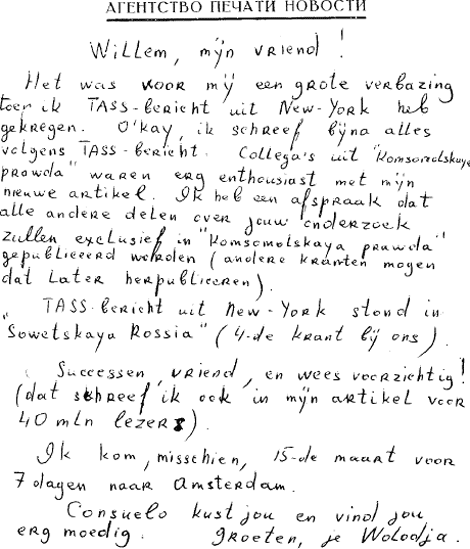 АГЕНТСТВО ПЕЧАТИ НОВОСТИ
Willem, mijn vriend!
Het was voor mij een grote verbazing
toen ik TASS-bericht uit New-York heb
gekregen. O'kay, ik schreef bijna alles
volgens TASS-bericht. Collega's uit "Komsomolskaya
prawda" waren erg enthousiast met mijn
nieuwe artikel. Ik heb een afspraak dat
alle andere delen over jouw onderzoek
zullen exclusief in "Komsomolskaya prawda"
gepubliceerd worden (andere kranten mogen
dat later herpubliceren).
TASS-bericht uit New-York stond in
"Sowetskaya Rossia" (4-de krant bij ons).
Successen, vriend, en wees voorzichtig!
(dat schreef ik ook in mijn artikel voor
40 mln lezers).
Ik kom, misschien, 15-de maart voor
7 dagen naar Amsterdam.
Consuelo kust jou en vind jou
erg moedig. Groeten, je Wolodja.